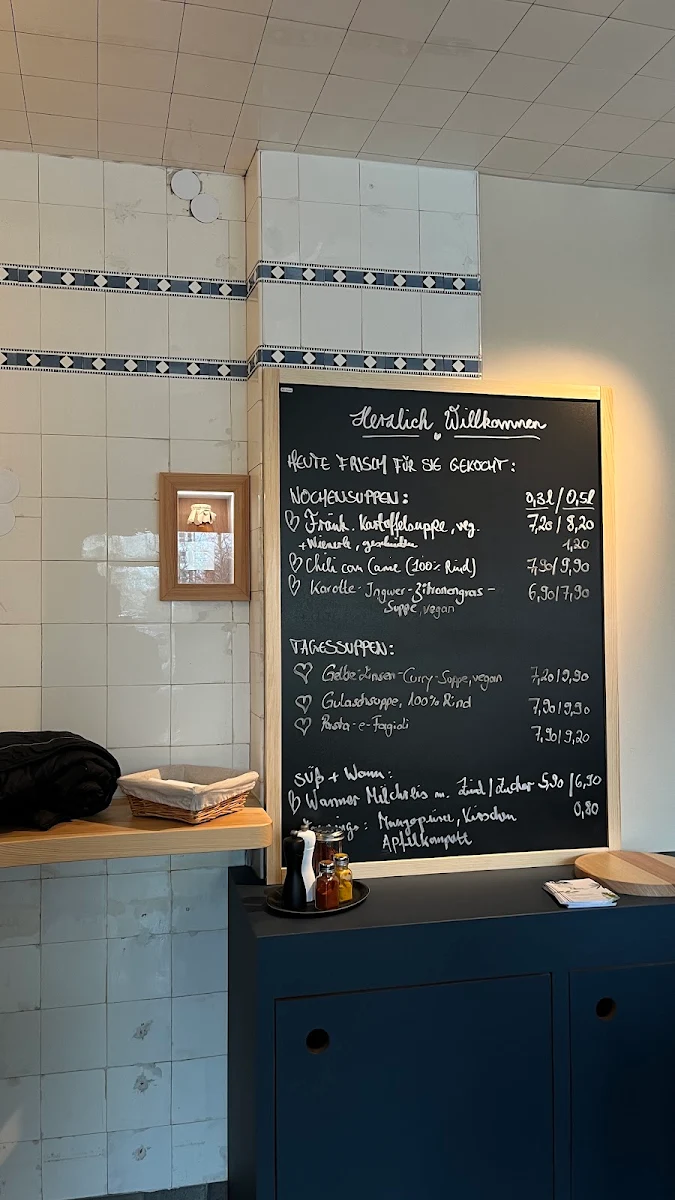 Herzlich Willkommen
HEUTE FRISCH FÜR SIE GEKOCHT:
WOCHENSUPPEN: 0,3l / 0,5l
Fränk. Kartoffelsuppe, veg. 7,20 / 8,20
+ Wienerle, geschnitten 1,20
Chili con Carne (100% Rind) 7,90 / 9,90
Karotte-Ingwer-Zitronengras- 6,90 / 7,90
Suppe, vegan
TAGESSUPPEN:
Gelbe-Linsen-Curry-Suppe, vegan 7,20 / 9,90
Gulaschsuppe, 100% Rind 7,90 / 9,90
Pasta-e-Fagioli 7,90 / 9,20
SÜß + Warm:
Warmer Milchreis m. Zimt / Zucker 5,90 / 6,90
: Mangopüree, Kirschen 0,80
Apfelkompott